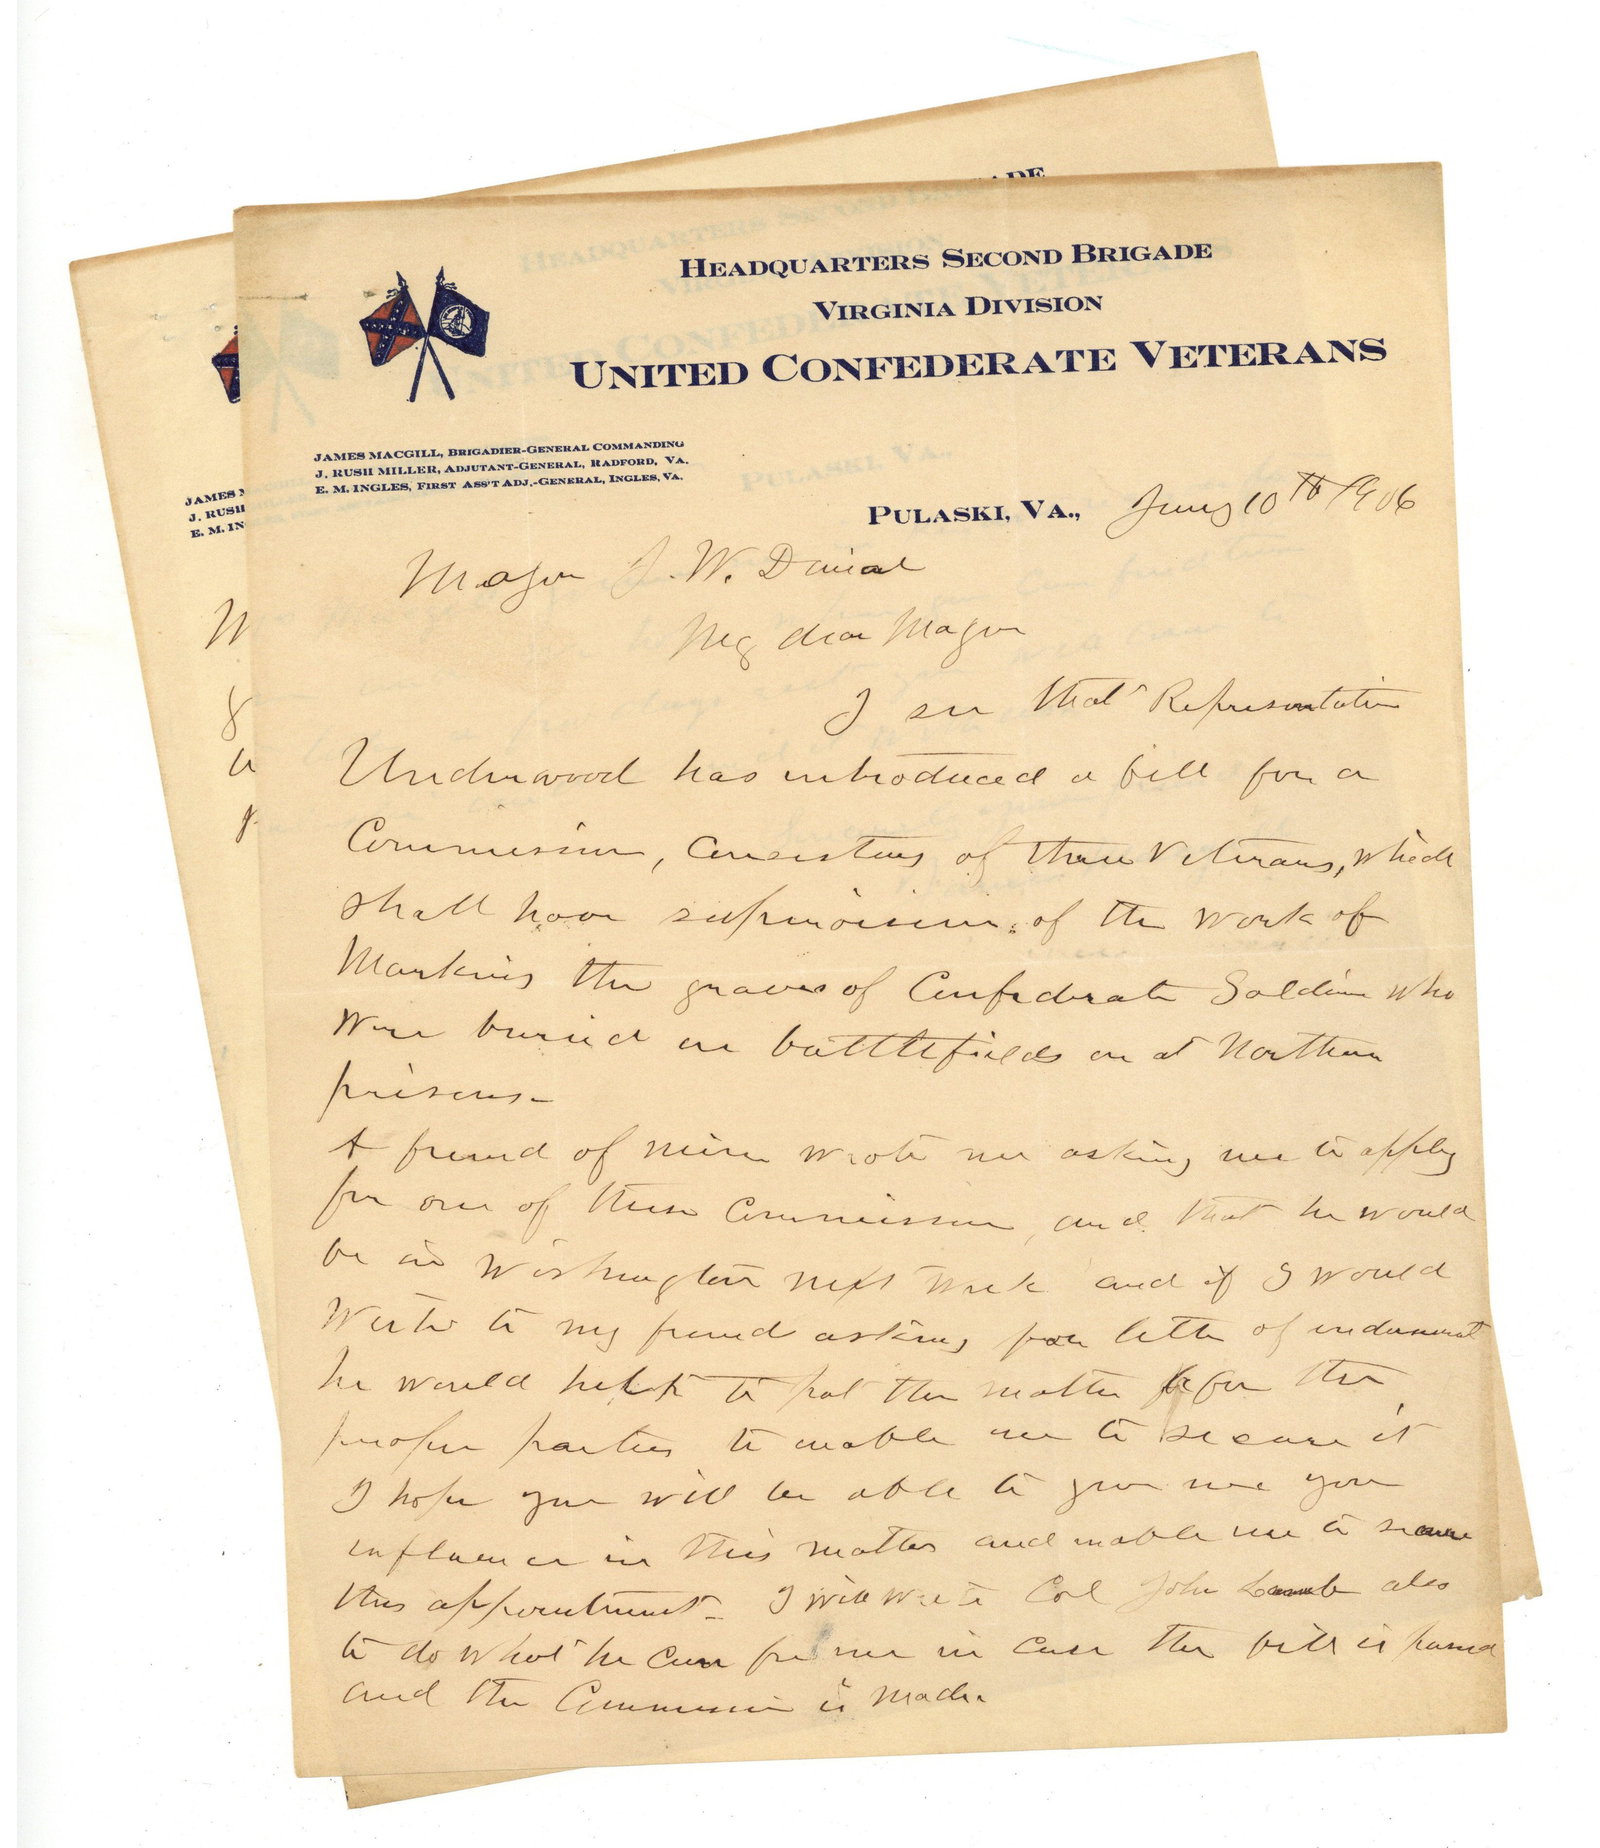 ADE
HEADQUARTERS SECOND BRIGADE
VIRGINIA DIVISION
UNITED CONFEDERATE VETERANS
JAMES MACGILL, BRIGADIER-GENERAL COMMANDING
J. RUSH MILLER, ADJUTANT-GENERAL, RADFORD, VA.
E. M. INGLES, FIRST ASS'T ADJ.-GENERAL, INGLES, VA.
JAMES M
J. RUSH
E. M. IN
PULASKI, VA., 10th 1906
Major J. W. Daniel
My dear Major
I see that Representative
Underwood has introduced a bill for a
Commission, consisting of three Veterans, which
shall have supervision of the work of
Marking the graves of Confederate Soldiers who
were buried on battlefields or at Northern
prisons-
A friend of mine wrote me asking me to apply
for one of these Commission and that he would
be in Washington next week and if I would
write to my friend asking for letter of indorsement
he would help to put the matter before the
proper parties to enable me to secure it
I hope you will be able to give me your
influence in this matter and enable me to secure
this appointment- I will write Col John Lamb also
to do what he can for me in case the bill is passed
and the Commission is made.